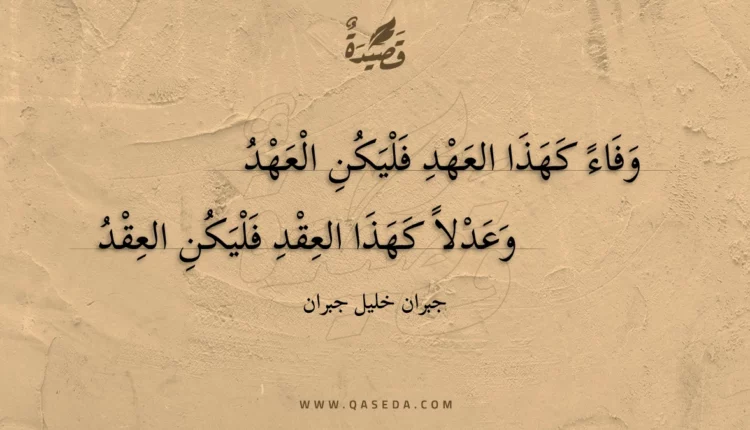 قَصِيدَةٌ
وَفَاءً كَهَذَا العَهْدِ فَلْيَكُنِ الْعَهْدُ
وَعَدْلاً كَهَذَا العِقْدِ فَلْيَكُنِ العِقْدُ
جبران خليل جبران
WWW.QASEDA.COM